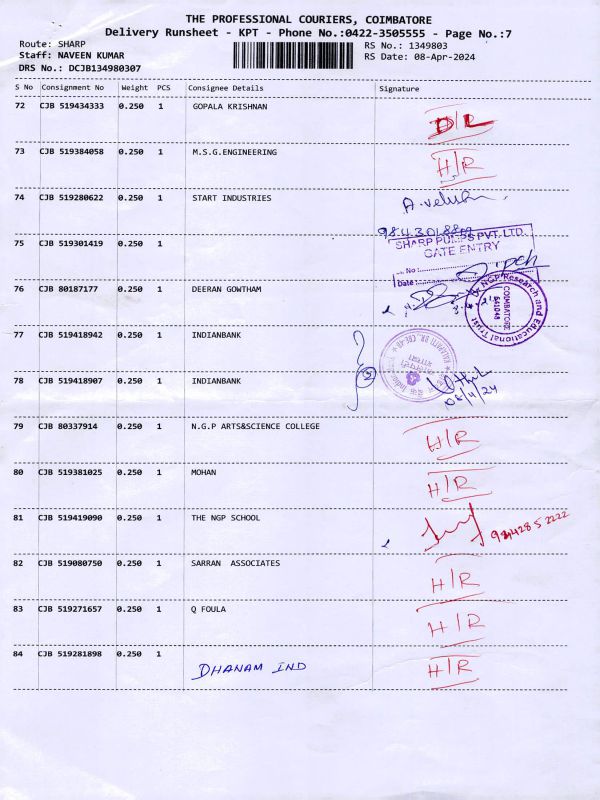 THE PROFESSIONAL COURIERS, COIMBATORE
Delivery Runsheet - KPT - Phone No.:0422-3505555 - Page No.:7
Route: SHARP RS No.: 1349803
Staff: NAVEEN KUMAR RS Date: 08-Apr-2024
DRS No.: DCJB134980307
S No Consignment No Weight PCS Consignee Details Signature
72 CJB 519434333 0.250 1 GOPALA KRISHNAN D/L
73 CJB 519384058 0.250 1 M.S.G.ENGINEERING H/R
74 CJB 519280622 0.250 1 START INDUSTRIES
75 CJB 519301419 0.250 1
SHARP PUMPS PVT. LTD.
GATE ENTRY
No :
Date :
76 CJB 80187177 0.250 1 DEERAN GOWTHAM
Dr NGP Research and Educational Trust
COIMBATORE
641048
77 CJB 519418942 0.250 1 INDIANBANK
2
78 CJB 519418907 0.250 1 INDIANBANK
79 CJB 80337914 0.250 1 N.G.P ARTS&SCIENCE COLLEGE H/R
80 CJB 519381025 0.250 1 MOHAN H/R
81 CJB 519419090 0.250 1 THE NGP SCHOOL
82 CJB 519080750 0.250 1 SARRAN ASSOCIATES H/R
83 CJB 519271657 0.250 1 Q FOULA H/R
84 CJB 519281898 0.250 1 DHANAM IND H/R